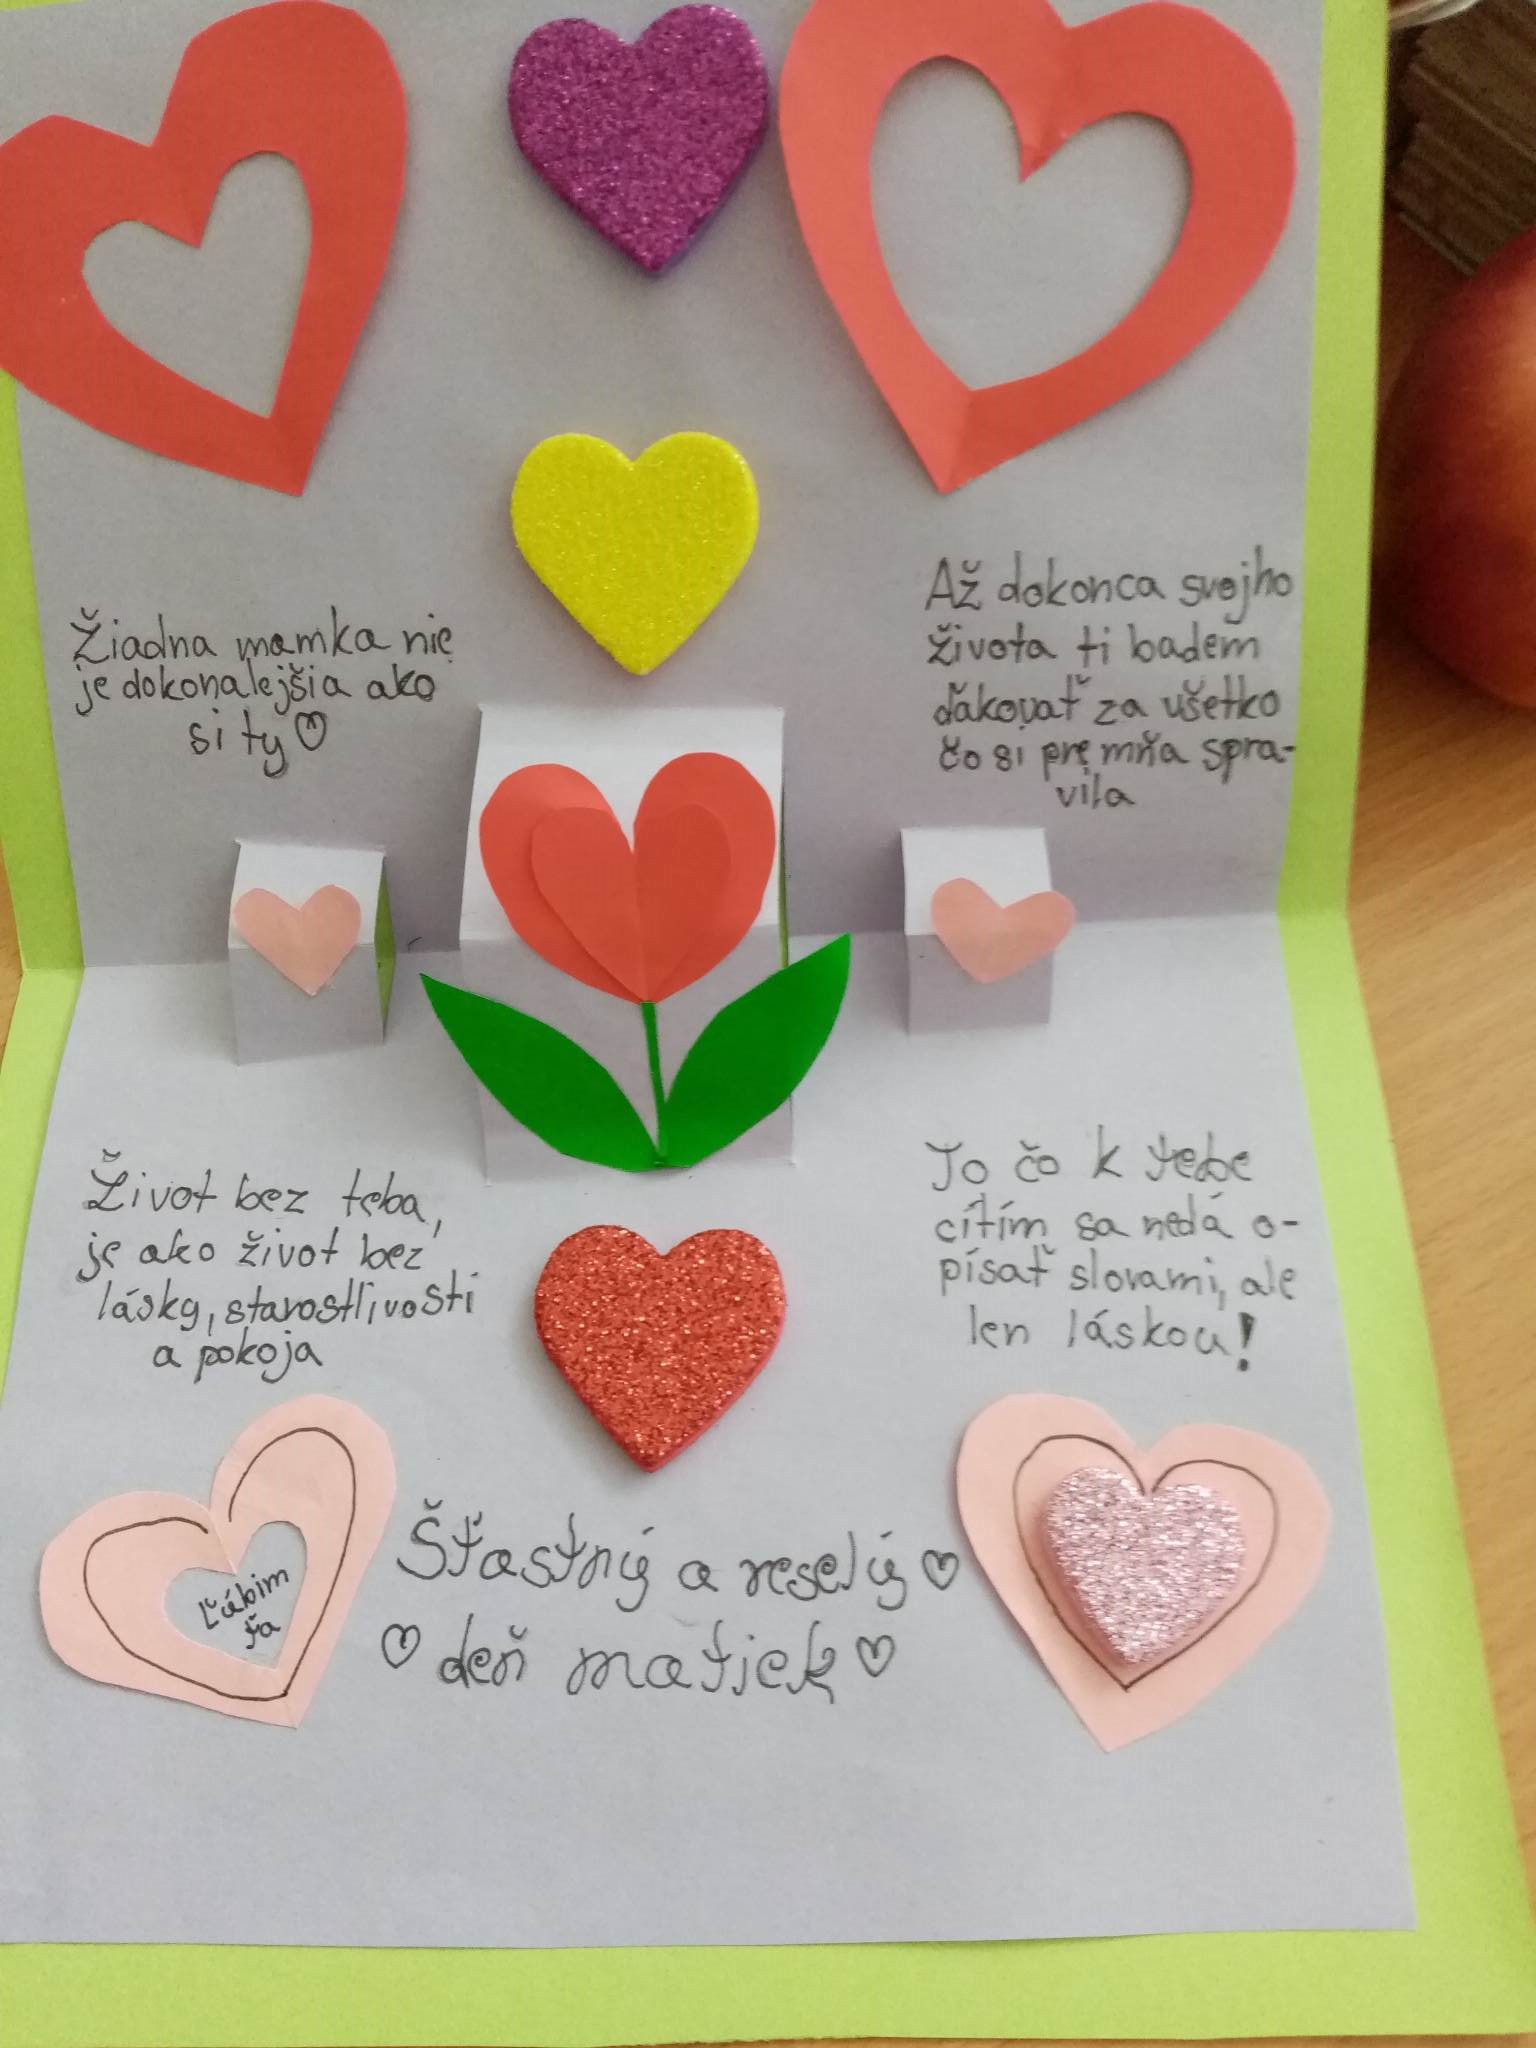 Žiadna mamka nie
je dokonalejšia ako
si ty♡
Až dokonca svojho
života ti badem
ďakovať za všetko
čo si pre mňa spra-
vila
Život bez teba,
je ako život bez
lásky, starostlivosti
a pokoja
To čo k tebe
cítím sa nedá o-
písať slovami, ale
len láskou!
Ľúbim
ťa
Šťastný a veselý ♡
♡ deň matiek ♡